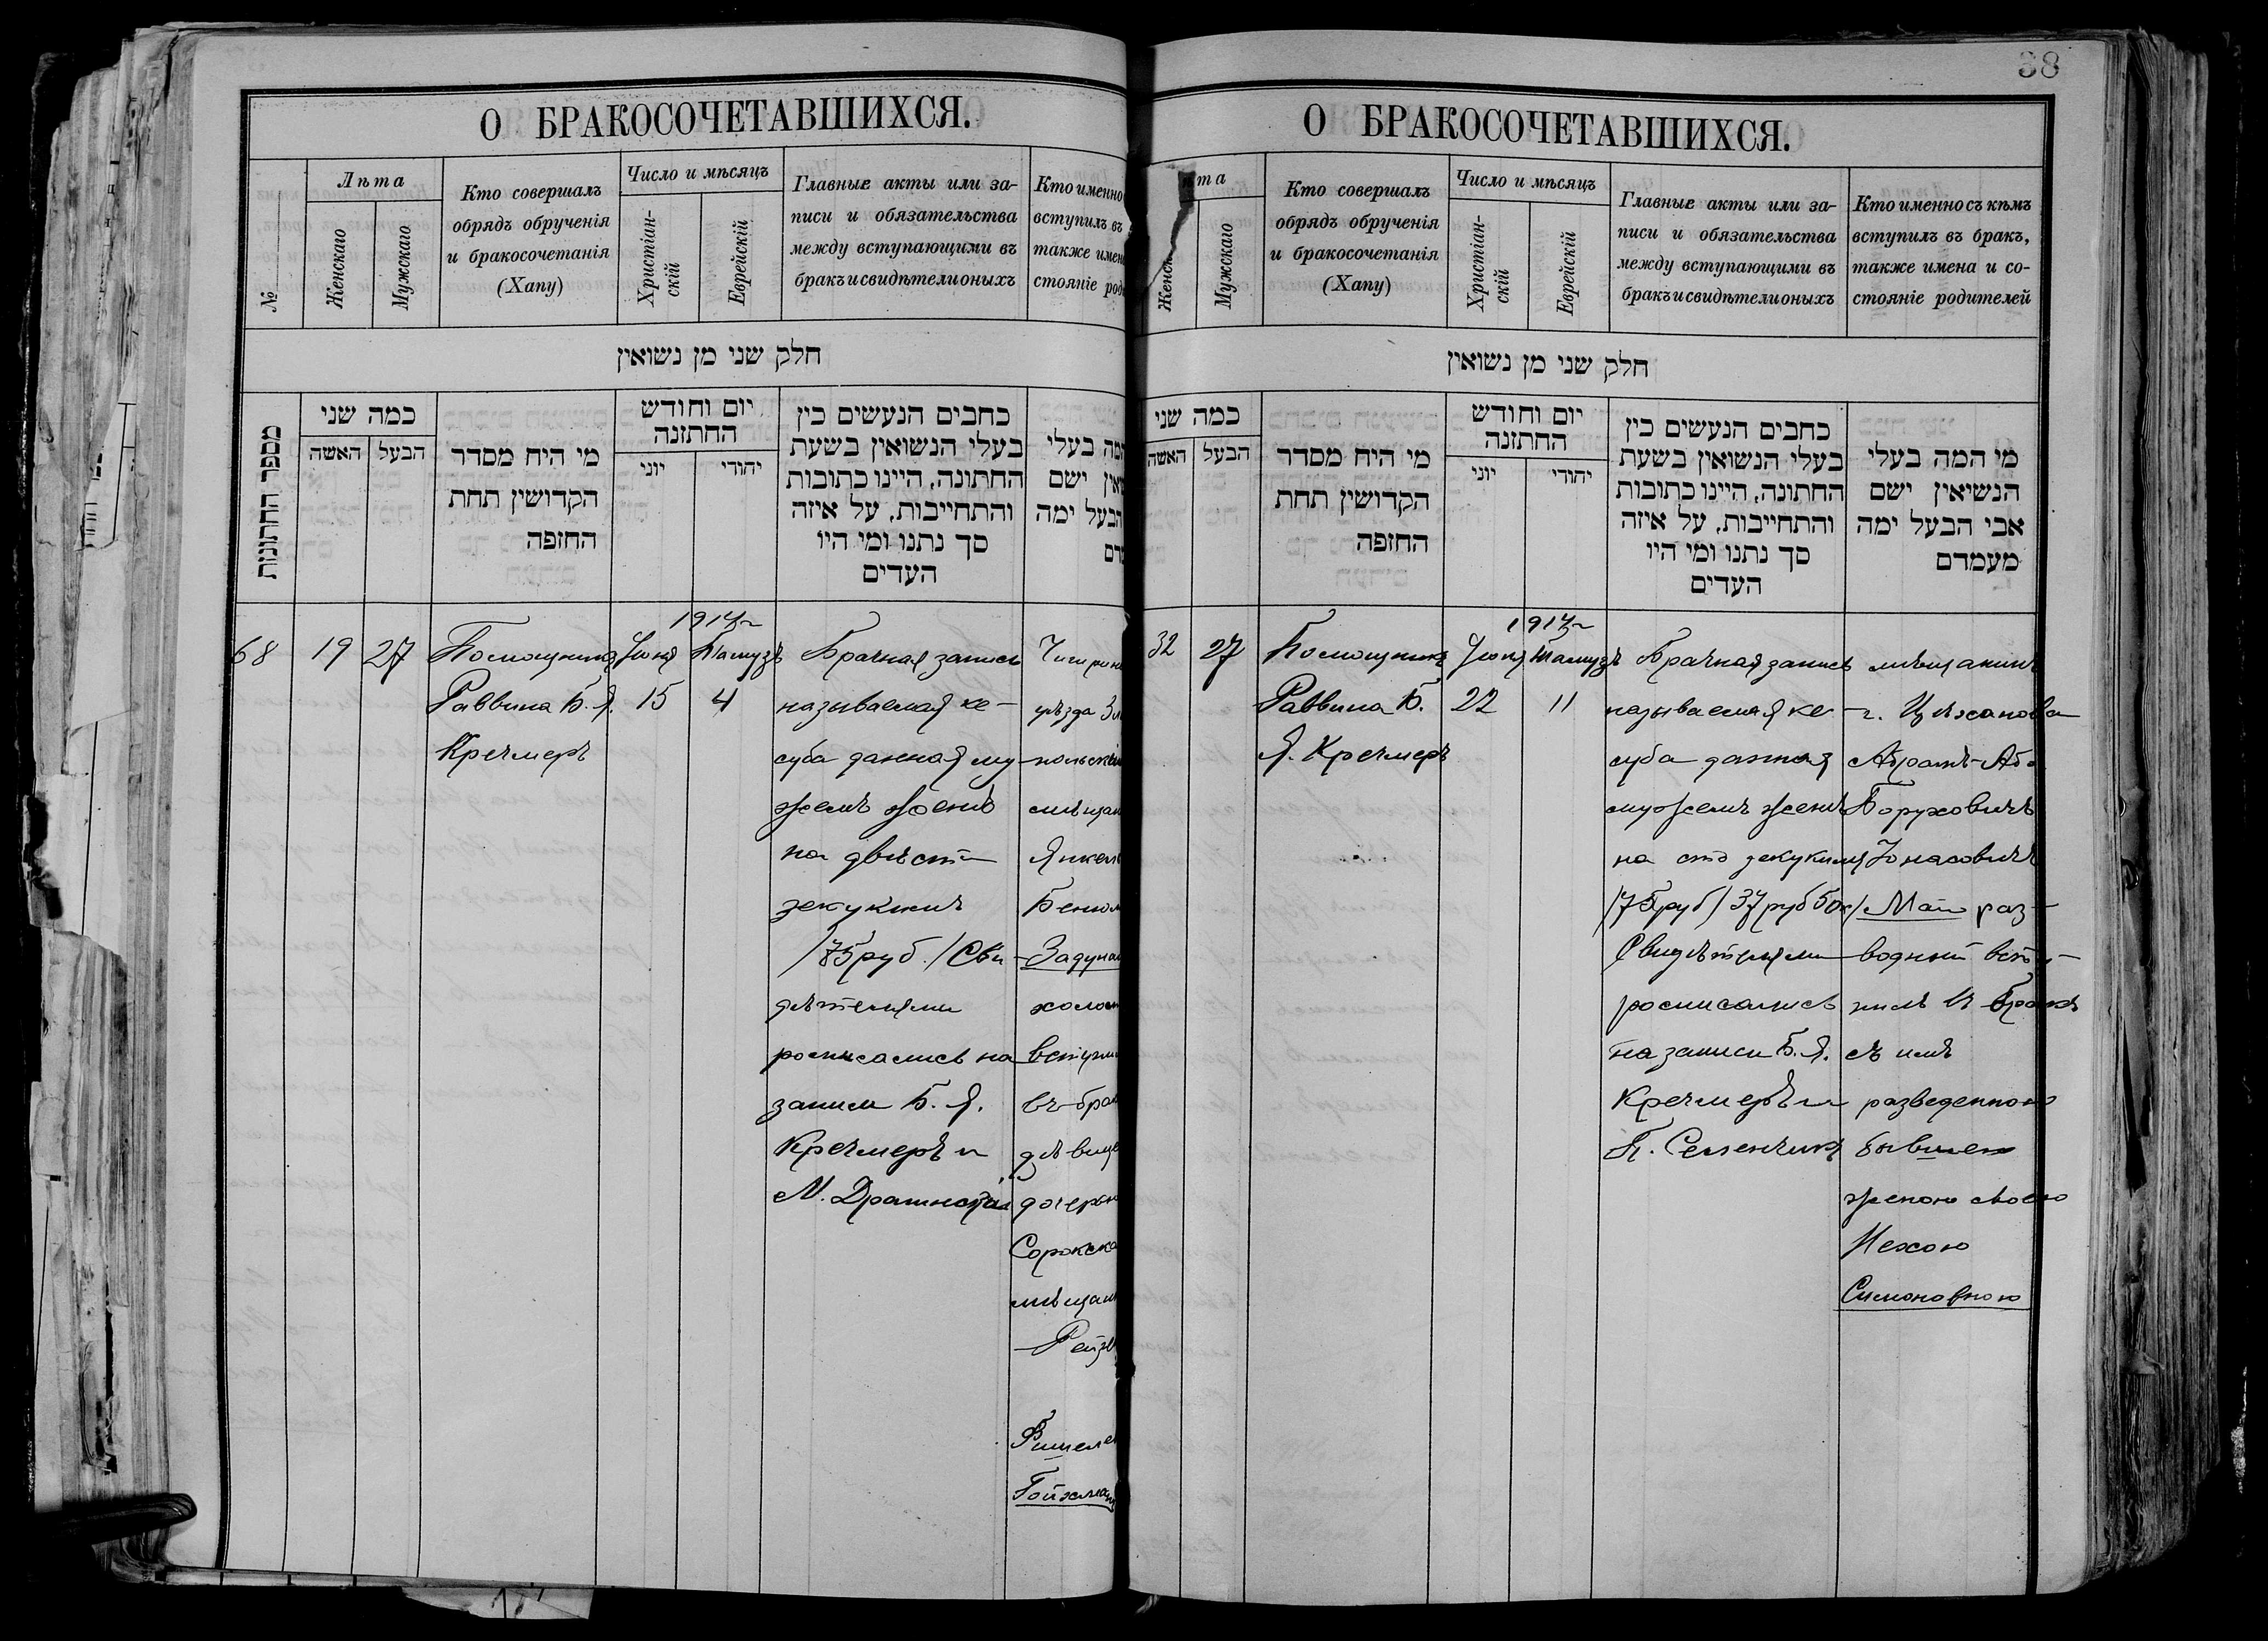 О БРАКОСОЧЕТАВШИХСЯ.
№
Лѣта
Женскаго
Мужскаго
Кто совершалъ
обрядъ обрученія
и бракосочетанія
(Хапу)
Число и мѣсяцъ
Христіан-
скій
Еврейскій
Главные акты или за-
писи и обязательства
между вступающими въ
бракъ и свидѣтели оныхъ
Кто именно
вступилъ въ
также имен
стояніе род
חלק שני מן נשואין
מספר החתונות
כמה שני
האשה
הבעל
מי היח מסדר
הקדושין תחת
החזפה
יום וחודש
החתזנה
יוני
יהודי
כחבים הנעשים כין
בעלי הנשואין בשעת
החתונה, היינו כתובות
והתחייבות, על איזה
סך נתנו ומי היו
העדים
המה בעלי
ישם
הבעל ימה
68
19
27
Помощникъ
Раввина Б. Я.
Кречмеръ
1914 г.
Іюня
15
Тамузъ
4
Брачная запись
называемая ке-
суба данная му
жемъ женѣ
на двѣсти
зекукимъ
/75 руб./ Сви
дѣтелями
росписались на
записи Б. Я.
Кречмеръ и
уѣзда Зл
польскій
мѣщан
Янкель
Беном
Задунай
холост
вступил
въ бра
дѣвице
дочерью
Сорокска
мѣщан
Рейзе
Гойхман
38
О БРАКОСОЧЕТАВШИХСЯ.
та
Женск
Мужскаго
Кто совершалъ
обрядъ обрученія
и бракосочетанія
(Хапу)
Число и мѣсяцъ
Христіан-
скій
Еврейскій
Главные акты или за-
писи и обязательства
между вступающими въ
бракъ и свидѣтели оныхъ
Кто именно съ кѣмъ
вступилъ въ бракъ,
также имена и со-
стояніе родителей
חלק שני מן נשואין
כמה שני
האשה
הבעל
מי היח מסדר
הקדושין תחת
החזפה
יום וחודש
החתזנה
יוני
יהודי
כחבים הנעשים כין
בעלי הנשואין בשעת
החתונה, היינו כתובות
והתחייבות, על איזה
סך נתנו ומי היו
העדים
מי המה בעלי
הנשיאין ישם
אבי הבעל ימה
מעמדם
32
27
Помощникъ
Раввина Б.
Я. Кречмеръ
1914 г.
Іюня
22
Тамузъ
11
Брачная запись
называемая ке
суба данная
мужемъ женѣ
на сто зекукимъ
/75 руб/ 37 руб 50к/
Свидѣтелями
росписались
на записи Б. Я.
Кречмеръ и
П. Семенчикъ
мѣщанинъ
г. Цѣханова
Абрамъ-Аба
Боруховичъ
Іонасовичъ
Май раз-
водный всту-
пилъ въ бракъ
съ имъ
разведенною
бывшею
женою своею
Нехою
Симоновною